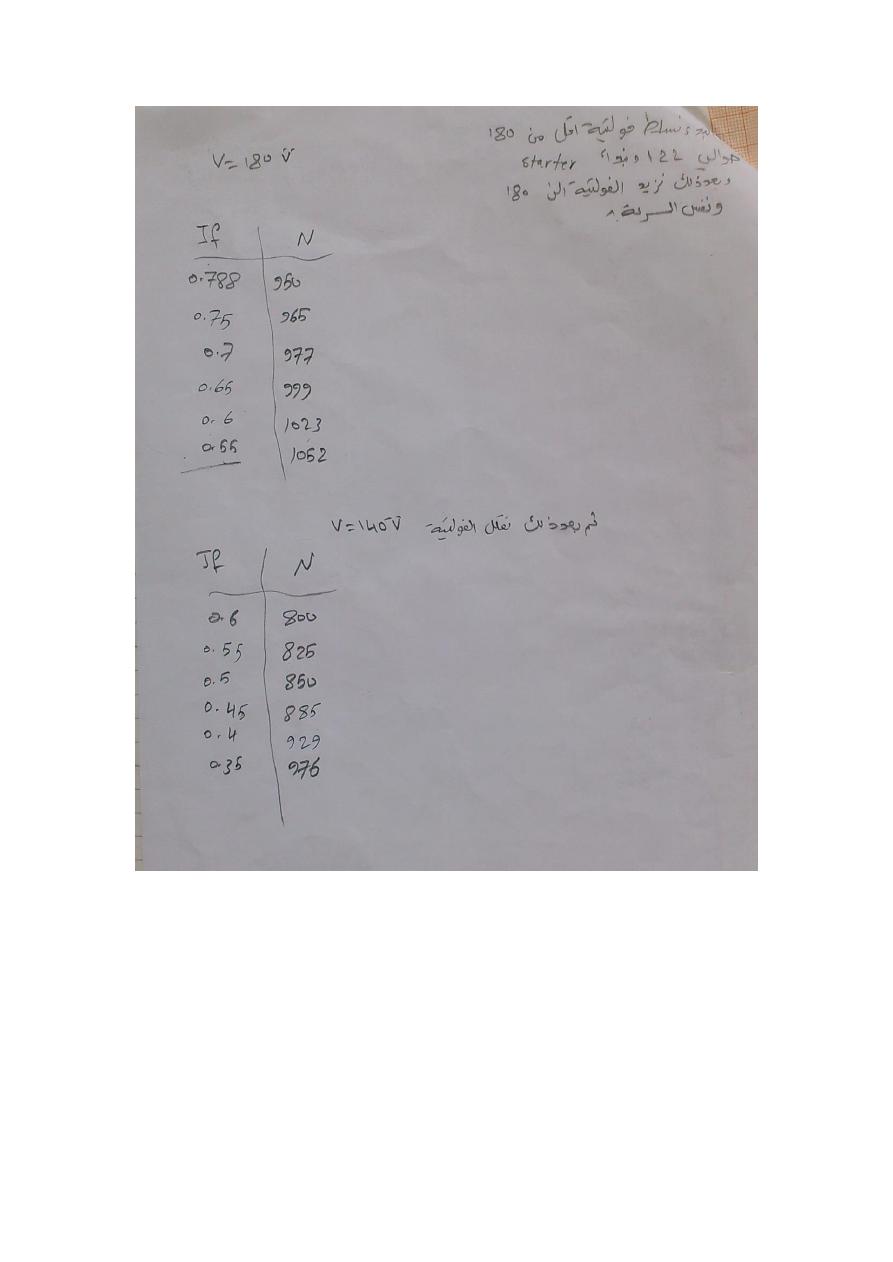 نسلط فولتية اقل من 180
حوالي 122 و نبدأ starter
وبعد ذلك نزيد الفولتية الى 180
ونفس السرعة
V=180 V
If N
0.788 950
0.75 965
0.7 977
0.65 999
0.6 1023
0.55 1052
ثم بعد ذلك نقلل الفولتية V=140V
If N
0.6 800
0.55 825
0.5 850
0.45 885
0.4 929
0.35 976